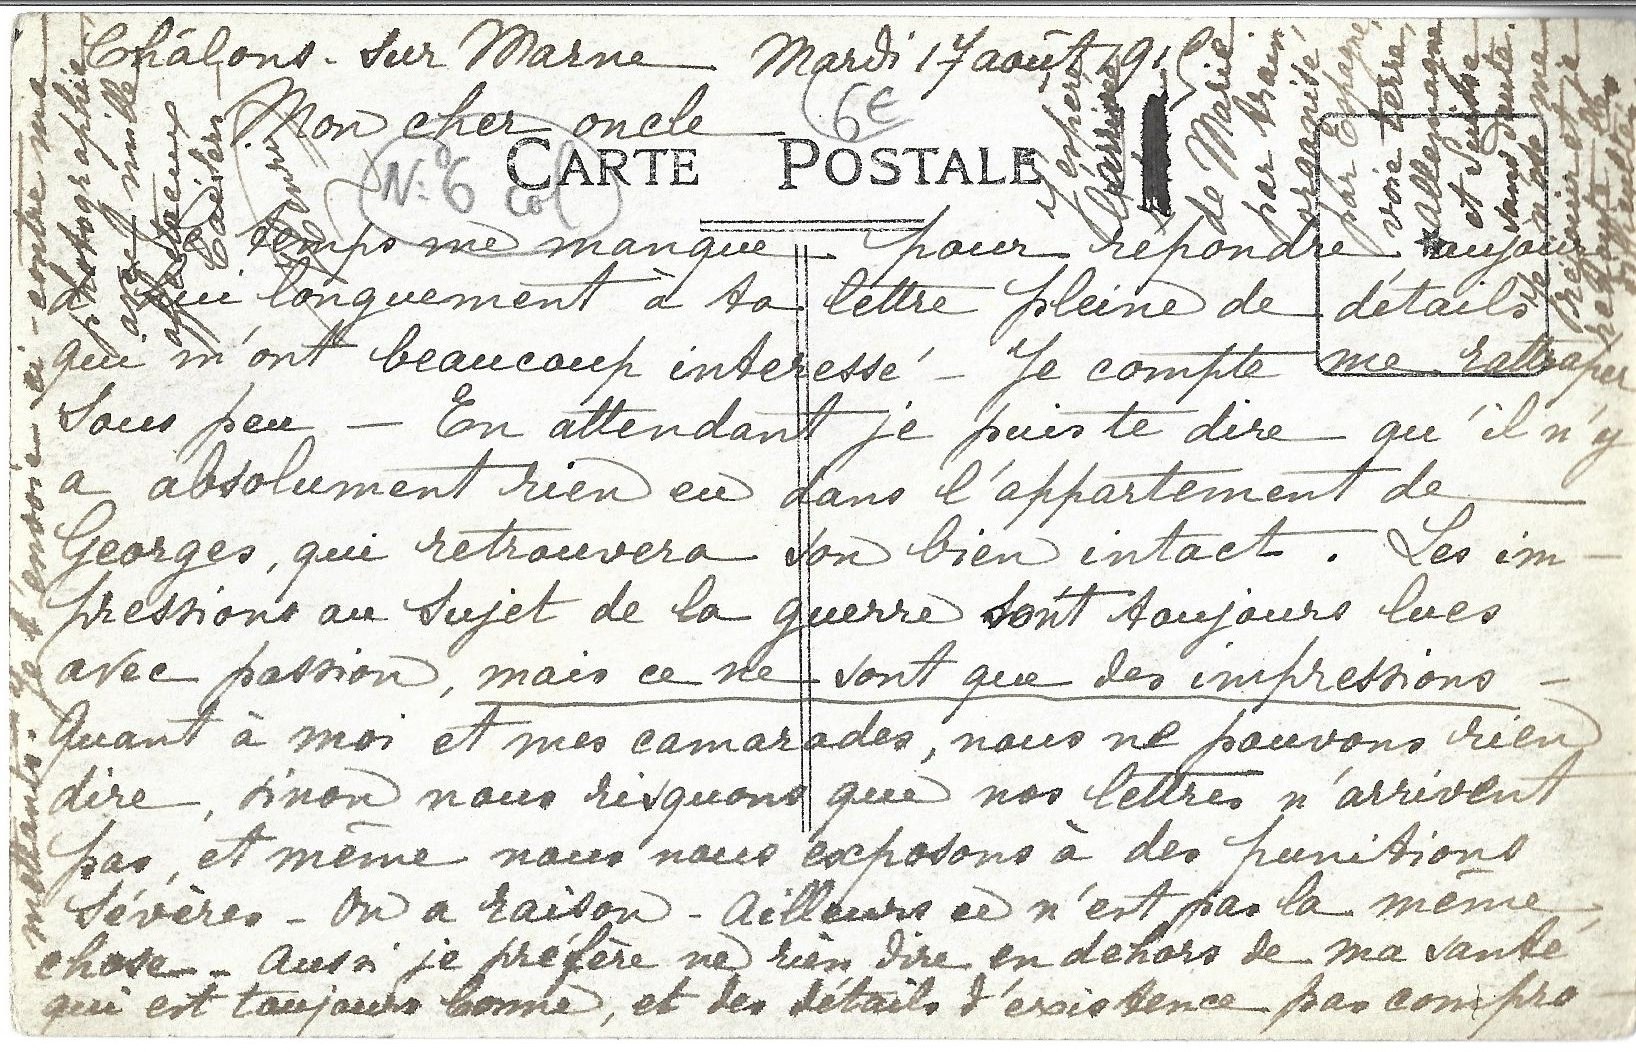 Châlons-sur Marne Mardi 17 août 1915
6€
Mon cher oncle
CARTE POSTALE
N° 6 col
Le temps me manque pour répondre aujour
d'hui longuement à ta lettre pleine de détails
qui m'ont beaucoup interessé - Je compte me rattraper
sous peu - En attendant je puis te dire qu'il n'y
a absolument rien eu dans l'appartement de
Georges, qui retrouvera son bien intact. Les im-
pressions au sujet de la guerre sont toujours lues
avec passion, mais ce ne sont que des impressions -
Quant à moi et mes camarades, nous ne pouvons rien
dire, sinon nous risquons que nos lettres n'arrivent
pas, et même nous nous exposons à des punitions
sévères - On a raison - Ailleurs ce n'est pas la même
chose - Aussi je préfère ne rien dire en dehors de ma santé,
qui est toujours bonne, et des détails d'existence pas compro-
mettants. Je t'envoie ci-contre ma
photographie
avec mille
affectueux
baisers
J'espère
l'arrivée
de Marie
par train
organisé,
par Espagne,
voie terre,
allemagne
et Suisse
sans doute.